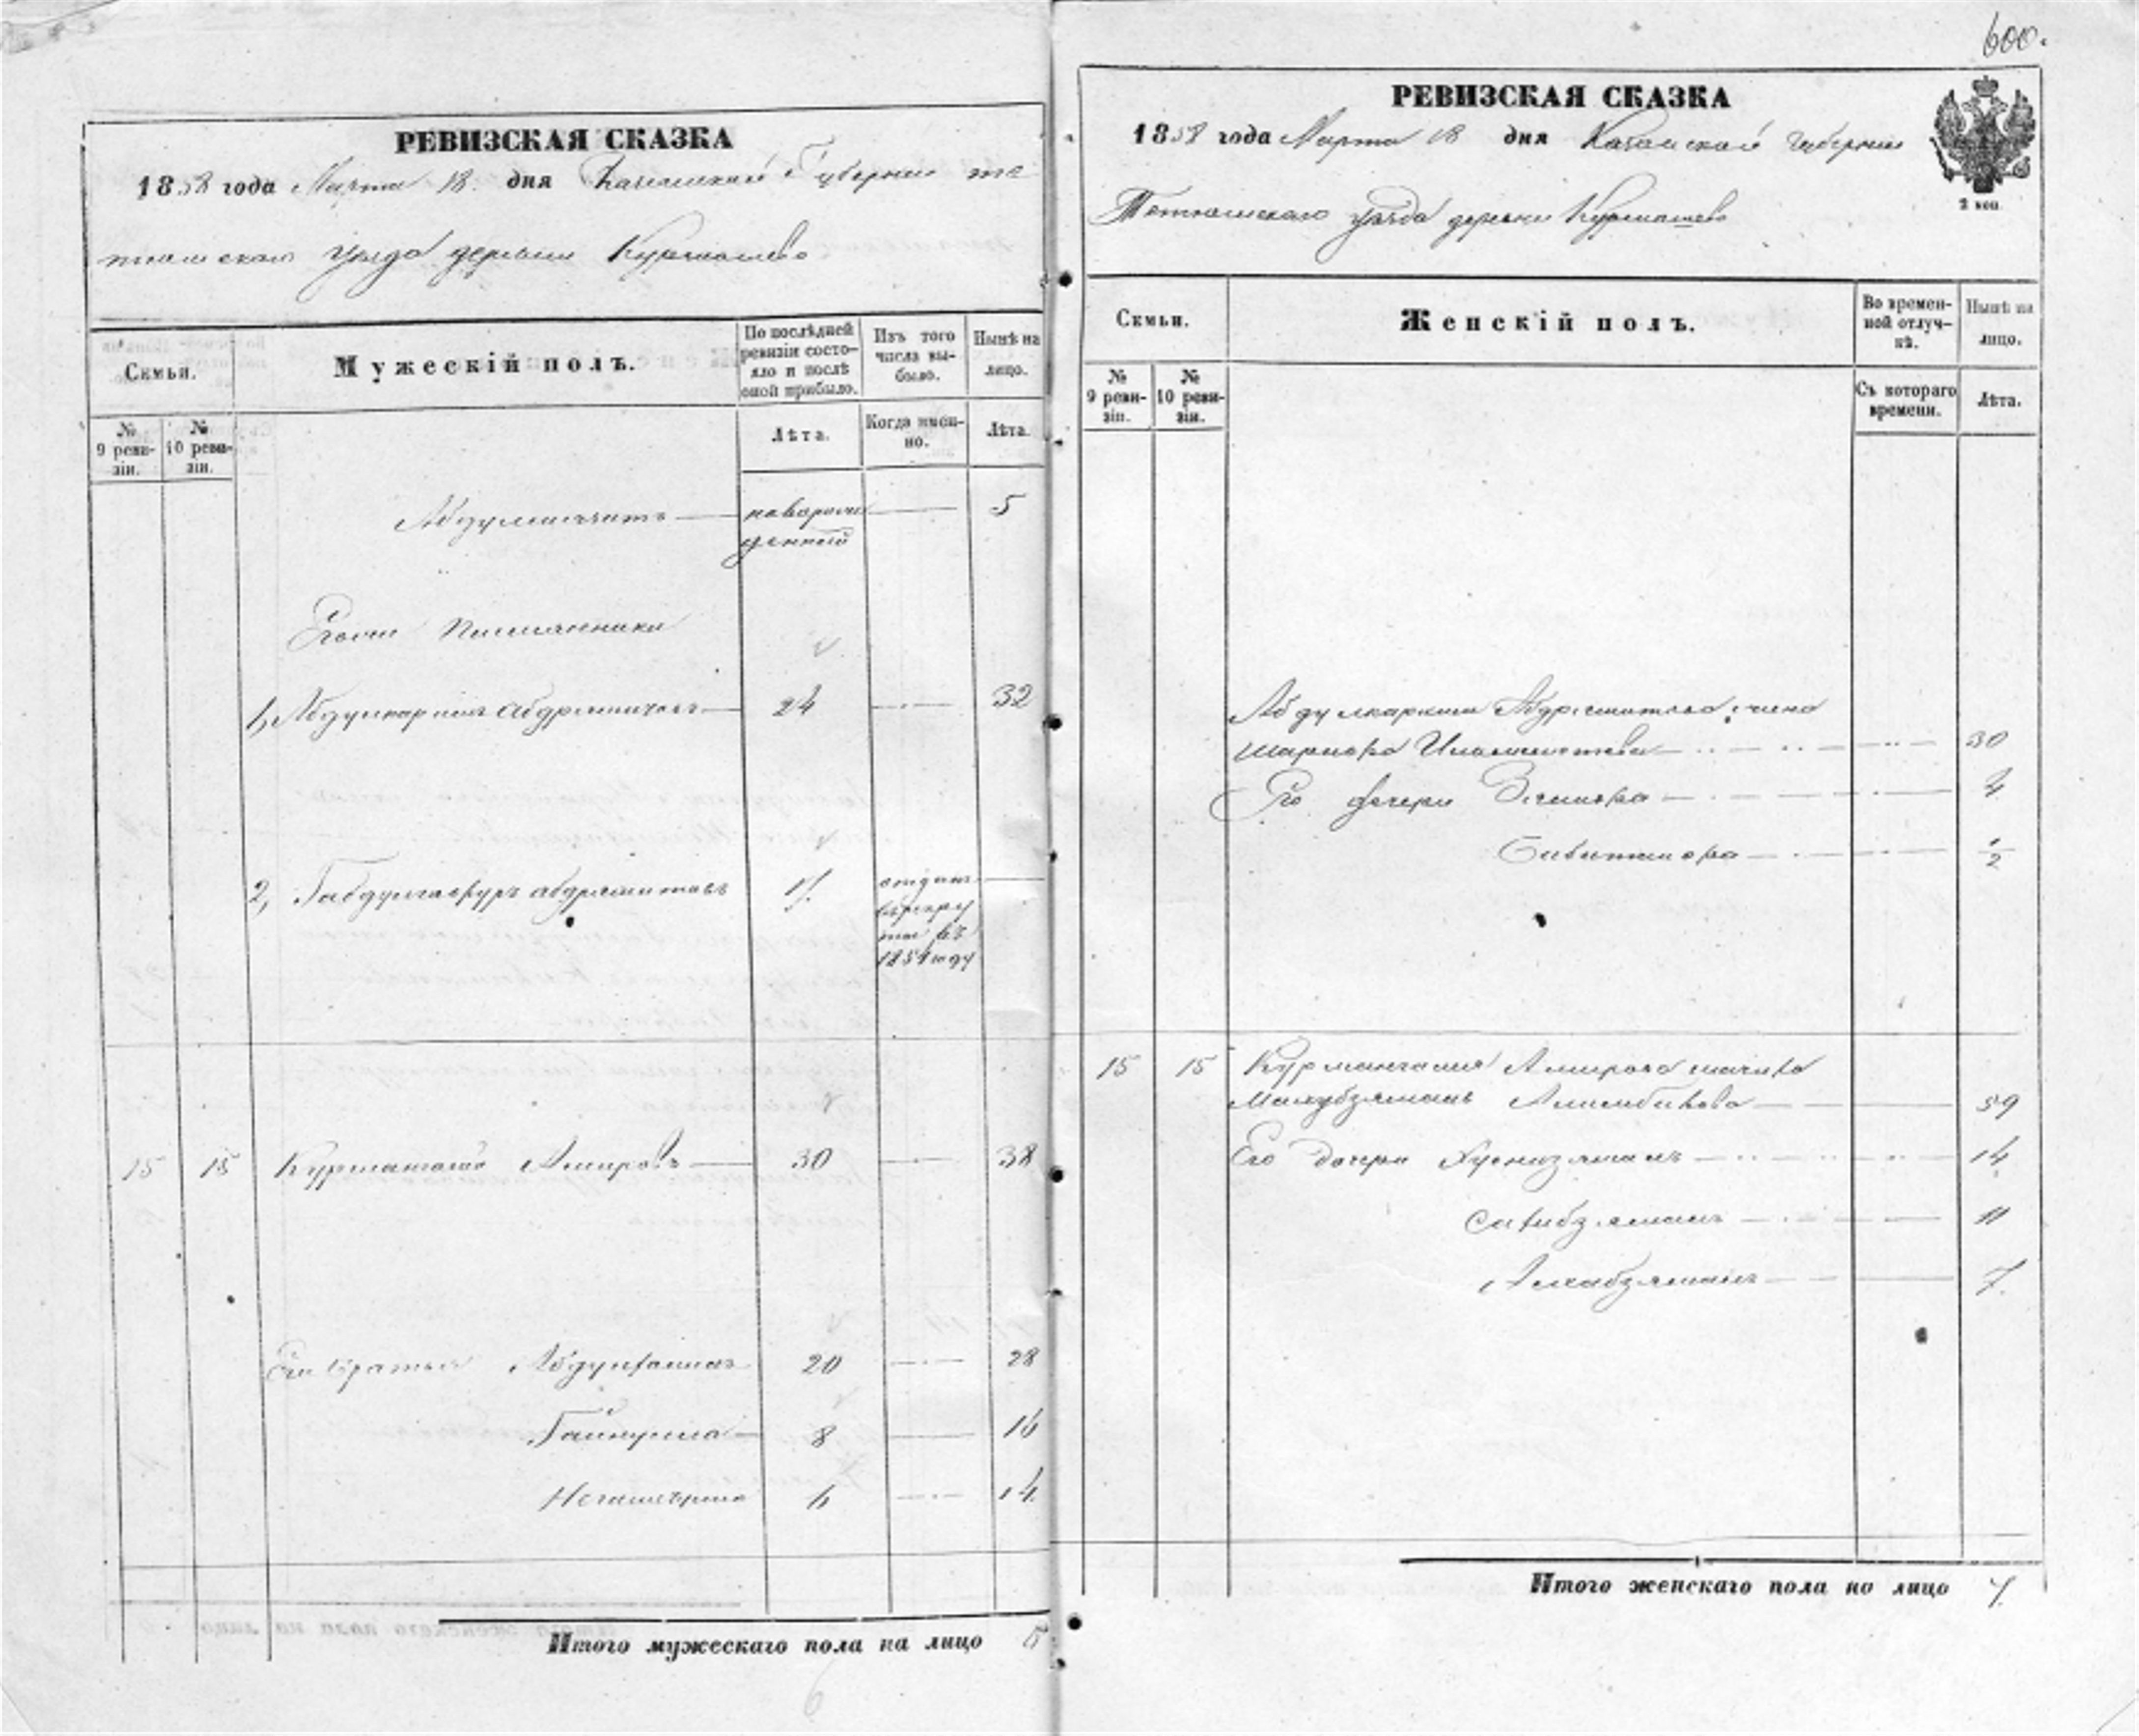 РЕВИЗСКАЯ СКАЗКА
1858 года Марта 18 дня Казанской Губернии те
тюшскаго уезда деревни Курмашево
Семьи.
№ 9 реви-зіи.
№ 10 реви-зіи.
Мужескій полъ.
По послѣдней ревизіи состо-яло и послѣ оной прибыло.
Лѣта.
Изъ того числа вы-было.
Когда имен-но.
Нынѣ на лицо.
Лѣта.
новорож 5
денный
Его племянники
1, Абдулкаримъ Абдрешитовъ 24 32
2, Габдулгафуръ абдрешитовъ 17 отданъ
въ рекру
ты въ
185 году
15 15 Курмангали Амировъ 30 38
Его братья 20 28
Гайнулла 8 16
6 14
Итого мужескаго пола на лицо 5
6
600.
РЕВИЗСКАЯ СКАЗКА
1858 года Марта 18 дня Казанской Губернии
2 коп.
Тетюшскаго уезда деревни Курмашево
Семьи.
№ 9 реви-зіи.
№ 10 реви-зіи.
Женскій полъ.
Во времен-ной отлуч-кѣ.
Съ котораго времени.
Нынѣ на лицо.
Лѣта.
Абдулкарима Абдрешитова жена
30
Его дочери 4
1/2
15 15 Курмангалия Амирова жена
59
Его дочери Хуснизямалъ 14
11
7
Итого женскаго пола но лицо 7